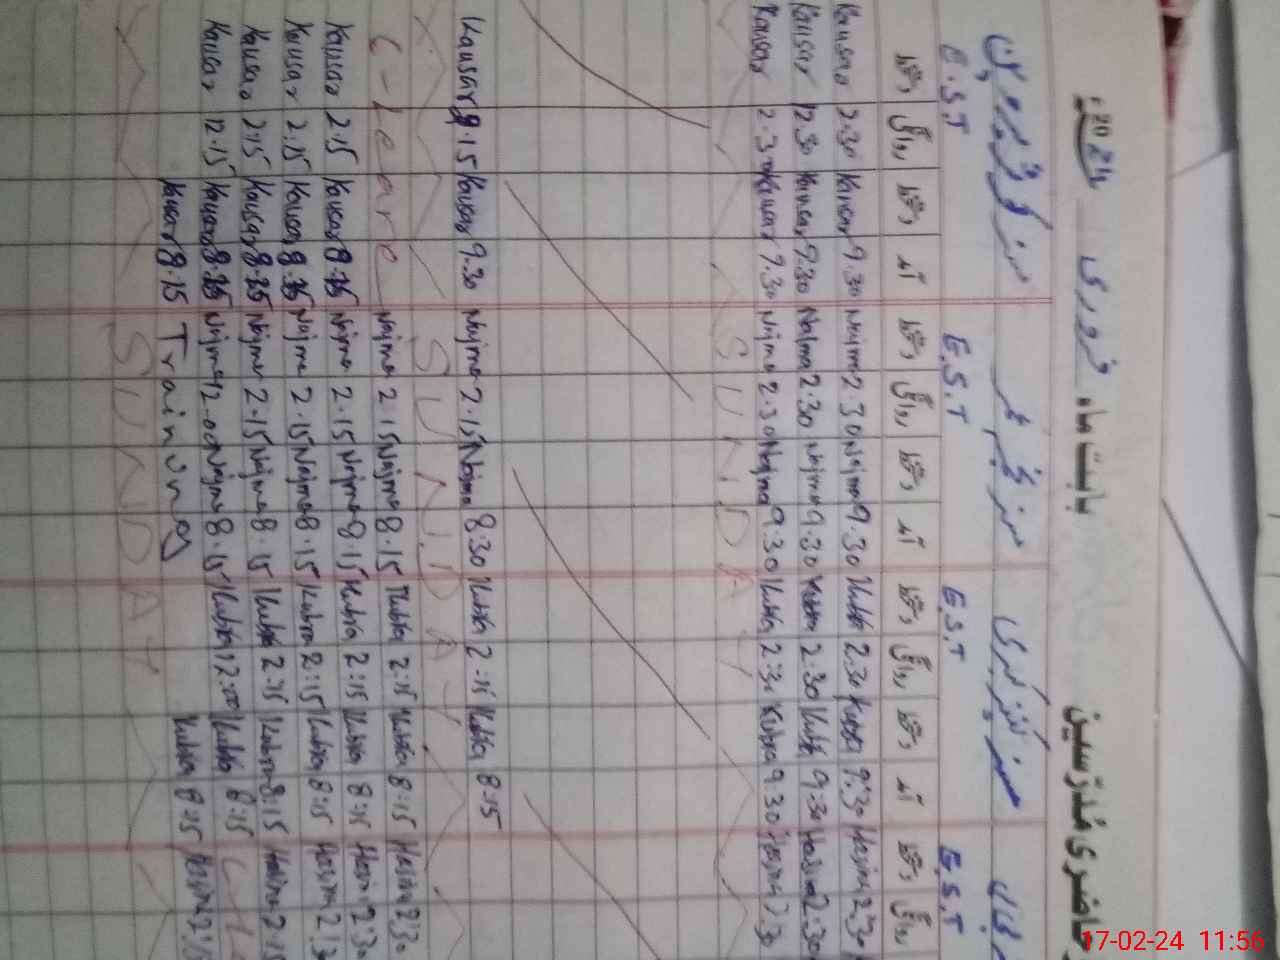 حاضری مدرسین بابت ماہ فروری 2024
E.S.T E.S.T E.S.T E.S.T
دستخط روانگی دستخط آمد دستخط روانگی دستخط آمد دستخط روانگی دستخط آمد دستخط روانگی
Kausar 2.30 Kausar 9.30 Najma 2.30 Najma 9.30 Kubra 2.30 Kubra 9:30 Hasina 2:30
Kausar 12.30 Kausar 9.30 Najma 2.30 Najma 9.30 Kubra 2.30 Kubra 9:30 Hasina 2:30
Kausar 2.30 Kausar 9.30 Najma 2.30 Najma 9.30 Kubra 2:30 Kubra 9:30 Hasina 2:30
SUNDAY
Kausar 8.15 Kausar 9.30 Najma 2.15 Najma 8:30 Kubra 2:15 Kubra 8:15
SUNDAY
C-Leave Najma 2.15 Najma 8.15 Kubra 2:15 Kubra 8:15 Hasina 2:30
Kausar 2.15 Kausar 8.15 Najma 2.15 Najma 8.15 Kubra 2:15 Kubra 8:15 Hasina 2:30
Kausar 2.15 Kausar 8.15 Najma 2.15 Najma 8.15 Kubra 2:15 Kubra 8:15 Hasina 2:30
Kausar 2.15 Kausar 8.15 Najma 2.15 Najma 8.15 Kubra 2:15 Kubra 8:15 Hasina 2:15
Kausar 12.15 Kausar 8.15 Najma 12.00 Najma 8.15 Kubra 12:00 Kubra 8:15
Kausar 8.15 Training Kubra 8:15 Hasina
SUNDAY
17-02-24 11:56